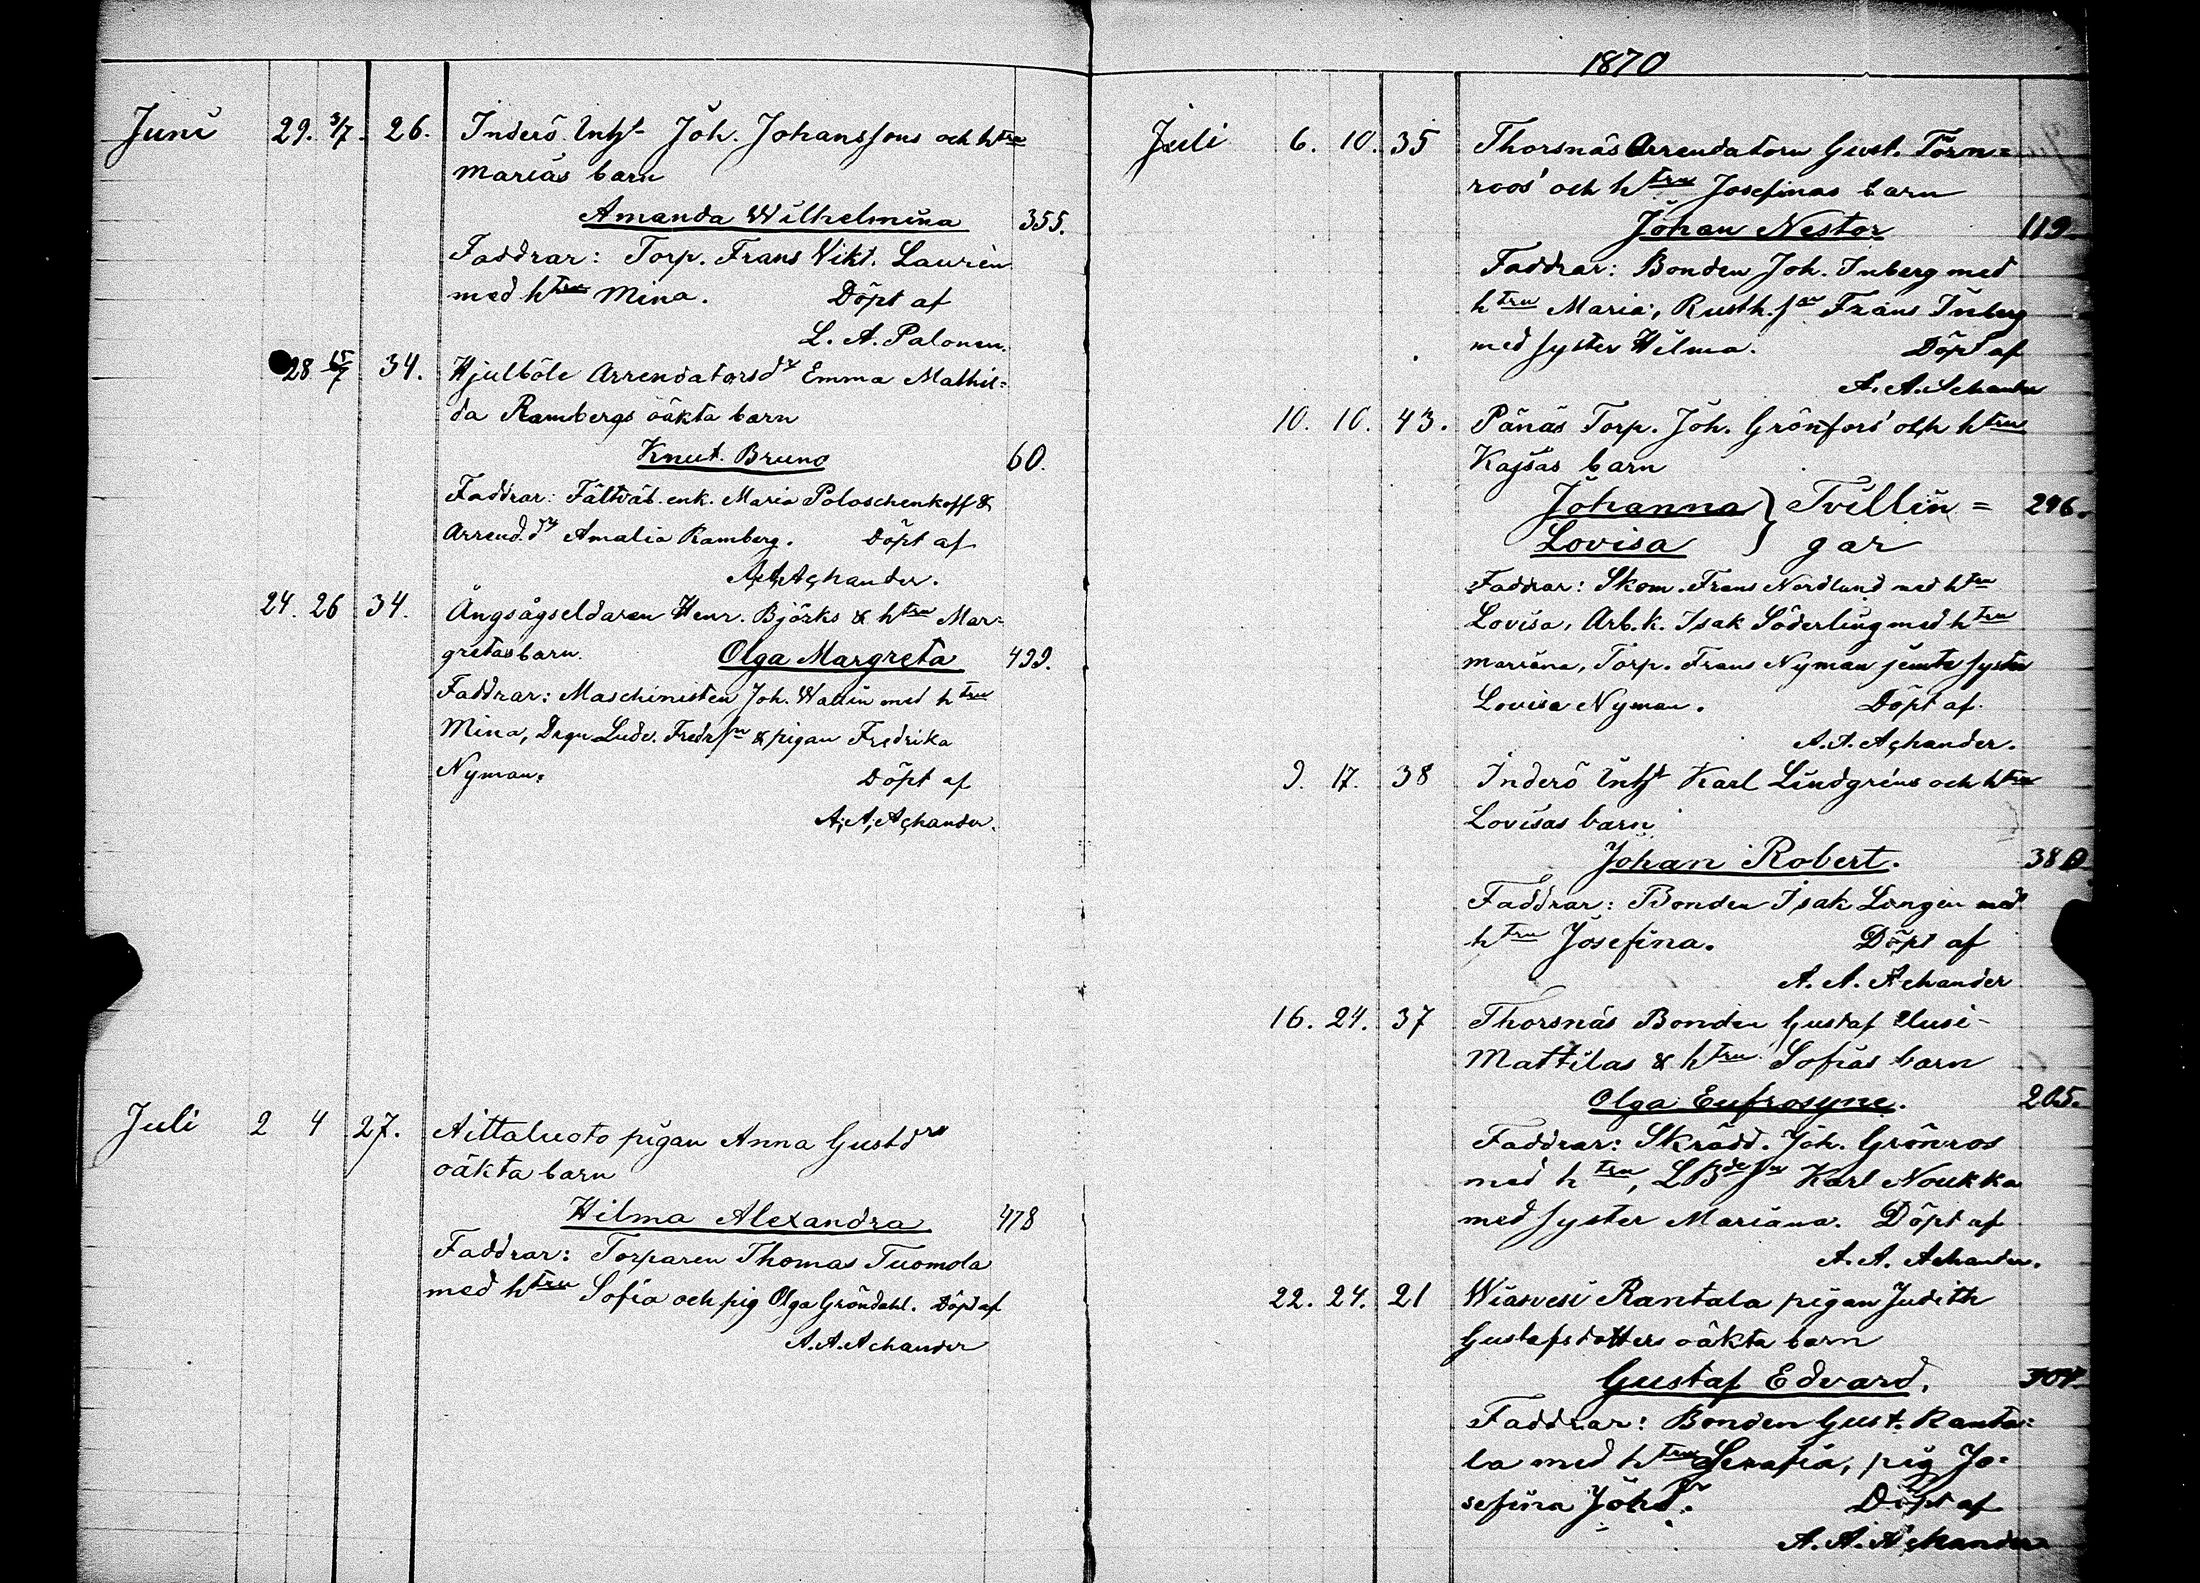 Juni 29. 3/7. 26. Inderö Inhs Joh. Johanssons och htru
Marias barn
Amanda Wilhelmina 355.
Faddrar: Torp. Frans Vikt. Laurén
med htru Mina. Döpt af
L. A. Palonen.
28 15/7 34. Hjulböle Arrendatorsdr Emma Mathil=
da Rambergs oäkta barn
Knut Bruno 60.
Faddrar: Fältväb. enk. Maria Poloschenkoff &
Arrend.dr Amalia Ramberg. Döpt af
A. A. Achander.
24. 26 34. Ångsågseldaren Henr. Björks & htru Mar=
gretas barn. Olga Margreta 499.
Faddrar: Maschinisten Joh. Wallin med htru
Mina, Drgn Ludv. Fredrsn & pigan Fredrika
Nyman. Döpt af
A. A. Achander.
Juli 2 4 27. Aittaluoto pigan Anna Gustdrs
oäkta barn
Hilma Alexandra 478
Faddrar: Torparen Thomas Tuomola
med htru Sofia och pig Olga Gröndahl. Döpt af
A. A. Achander
1870
Juli 6. 10. 35 Thorsnäs Arrendatorn Gust. Törn=
roos' och htru Josefinas barn
Johan Nestor 119.
Faddrar: Bonden Joh. Inberg med
htru Maria, Rusth.sn Frans Inberg
med syster Hilma. Döpt af
A. A. Achander
10. 10. 43. Pånäs Torp. Joh. Grönfors' och htru
Kajsas barn
Johanna } Tvillin = 296.
Lovisa } gar
Faddrar: Skom. Frans Nordlund med htru
Lovisa, Arb.k. Isak Söderling med htru
Mariana, Torp. Frans Nyman jemte syster
Lovisa Nyman. Döpt af
A. A. Achander.
9. 17. 38 Inderö Inhs Karl Lindgréns och htru
Lovisas barn
Johan Robert. 380
Faddrar: Bonden Isak Longén med
htru Josefina. Döpt af
A. A. Achander
16. 24. 37 Thorsnäs Bonden Gustaf Uusi-
Mattilas & htru Sofias barn
Olga Eufrosyne. 205.
Faddrar: Skrädd. Joh. Grönros
med htru, LBdesn Karl Noukka
med syster Mariana. Döpt af
A. A. Achander.
22. 24. 21 Wiasvesi Rantala pigan Judith
Gustafsdotters oäkta barn
Gustaf Edvard. 304.
Faddrar: Bonden Gust. Ranta=
la med htru Serafia, pig Jo=
sefina Johdr. Döpt af
A. A. Achander